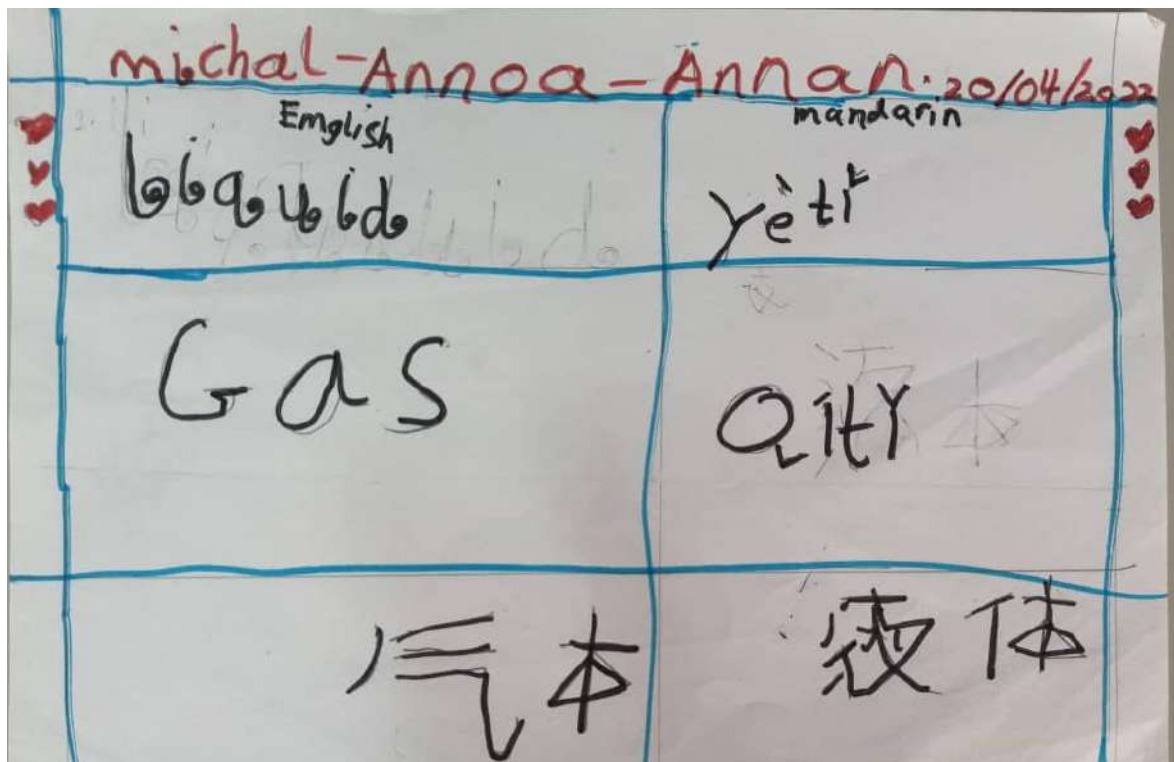 michal-Annoa-Annan. 20/04/2022
Emglish mandarin
Liquid yètǐ
Gas Qìtǐ
气本 液体